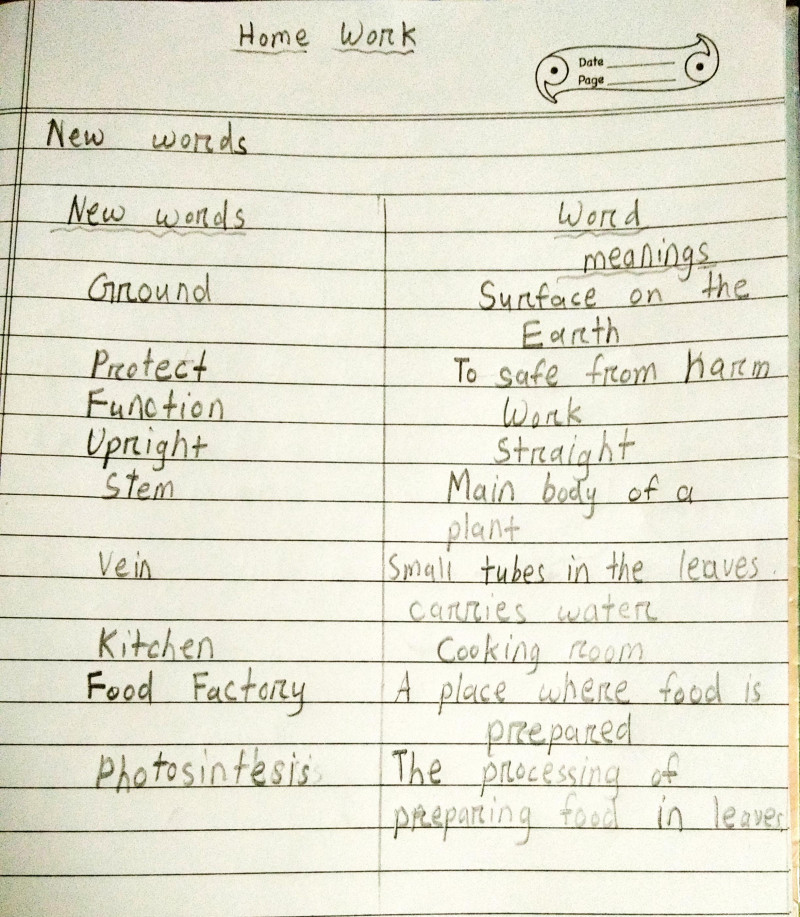 Home Work
Date
Page
New words
New words Word
meanings
Ground Surface on the
Earth
Protect To safe from harm
Function Work
Upright Straight
Stem Main body of a
plant
Vein Small tubes in the leaves.
carries water
Kitchen Cooking room
Food Factory A place where food is
prepared
Photosintesis The processing of
preparing food in leaves